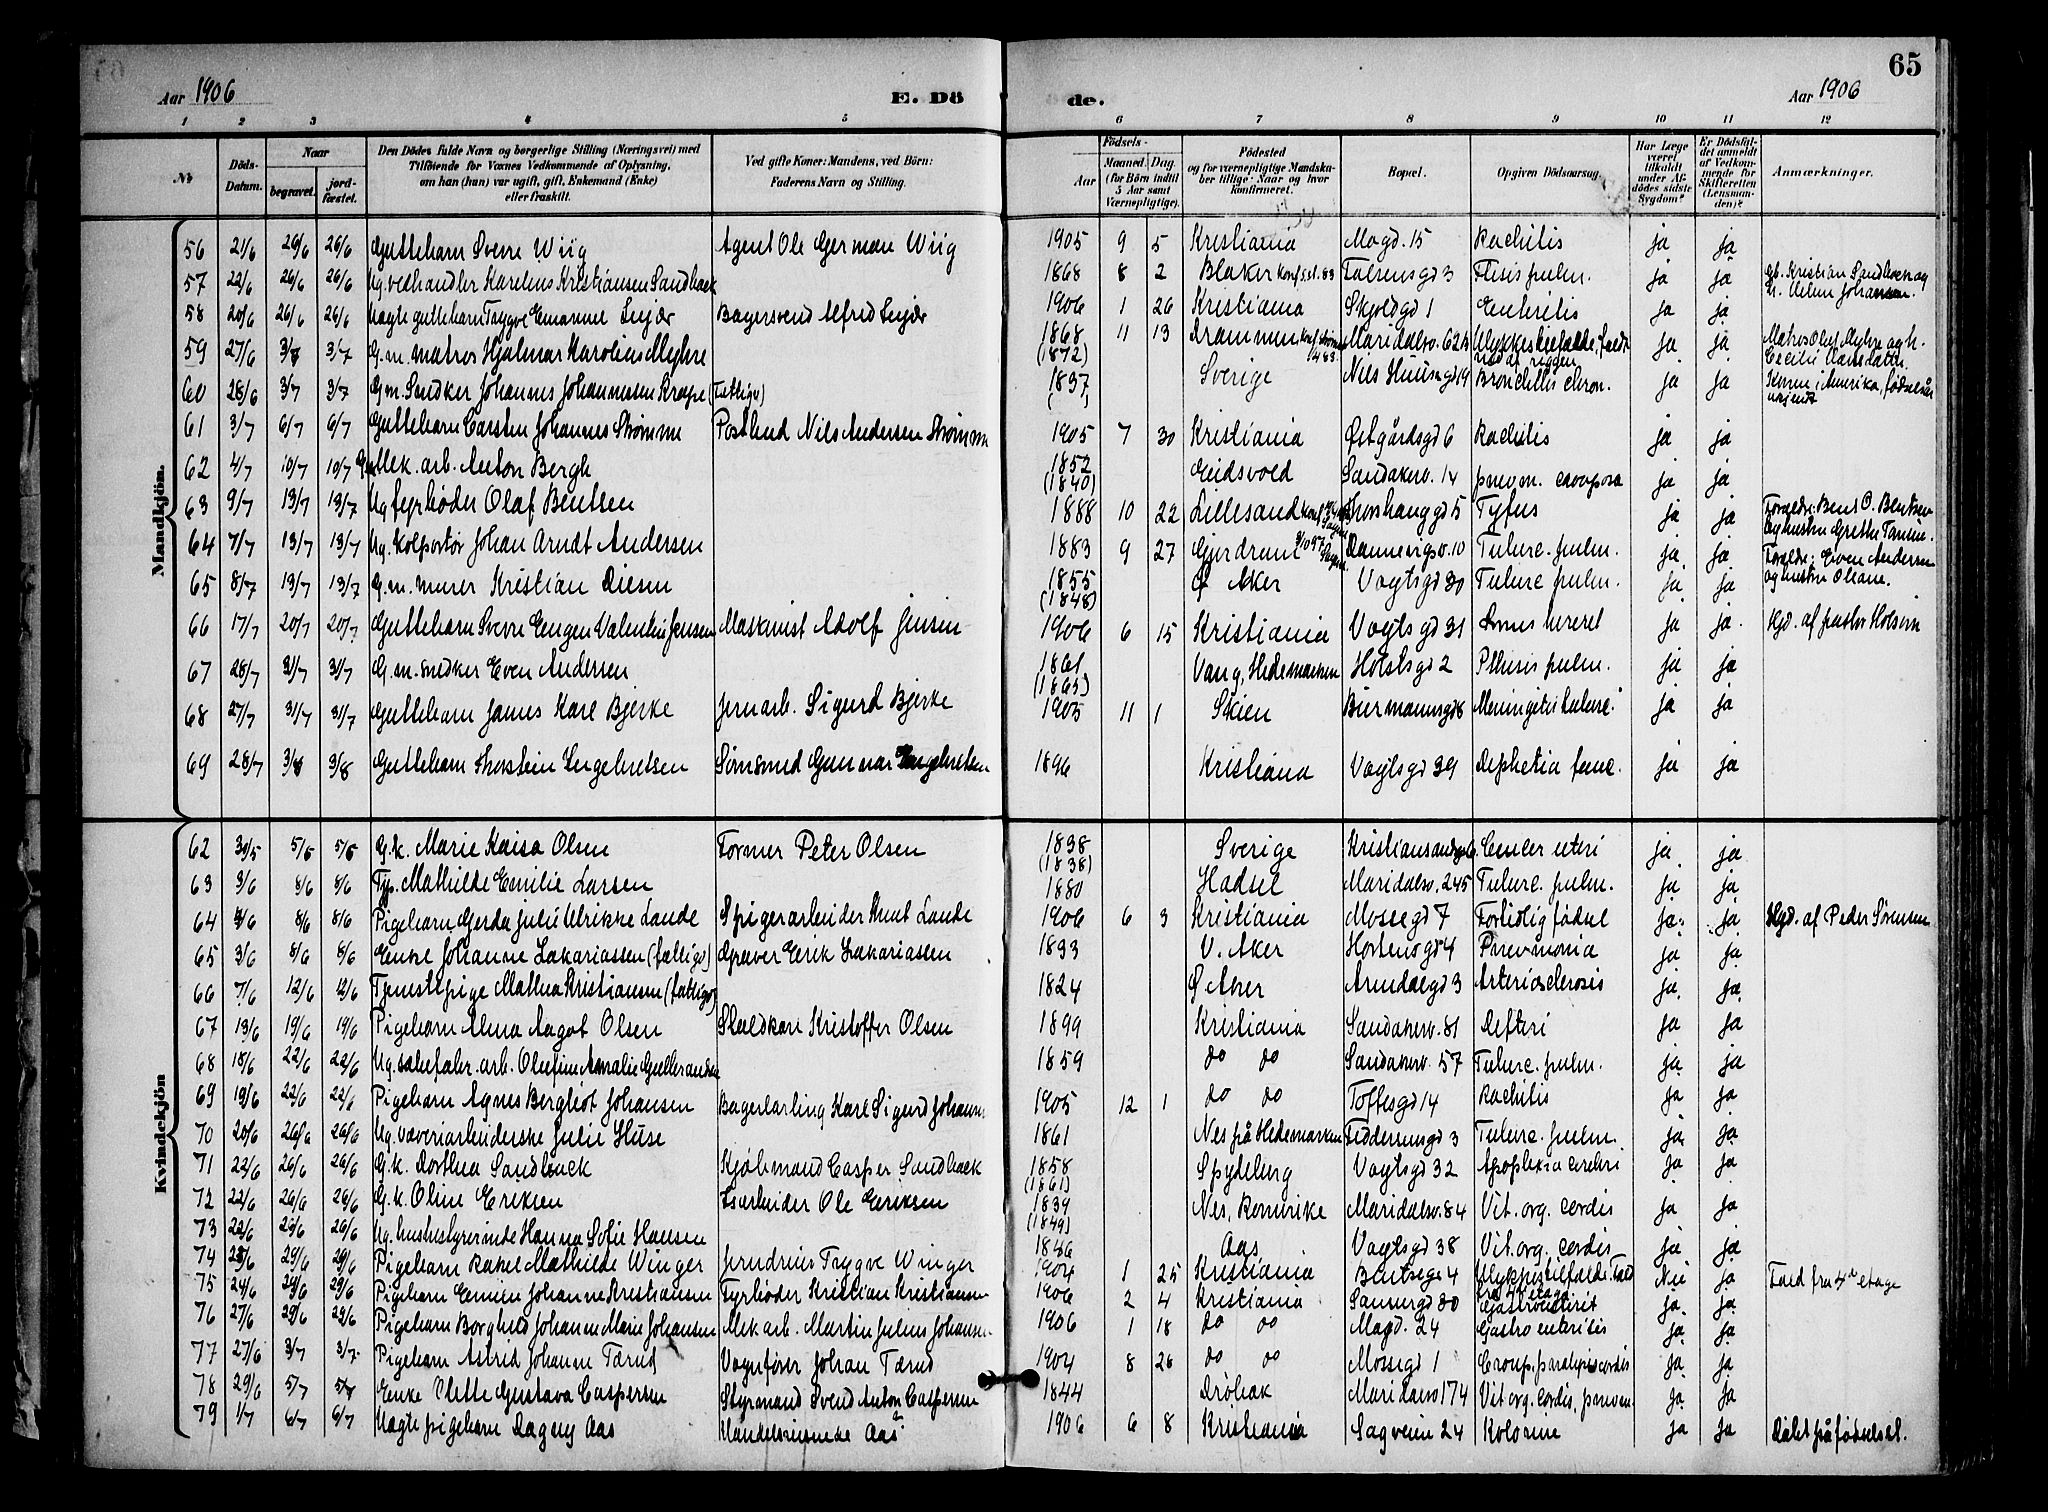 65
Aar 1906 E. Dö de. Aar 1906
1 2 3 4 5 6 7 8 9 10 11 12
№ Döds-Datum. Naar begravet. jordfæstet. Den Dödes fulde Navn og borgerlige Stilling (Næringsvei) med Tilföiende for Voxnes Vedkommende af Oplysning, om han (hun) var ugift, gift, Enkemand (Enke) eller fraskilt. Ved gifte Koner: Mandens, ved Börn: Faderens Navn og Stilling. Födsels- Aar Maaned Dag. (for Börn indtil 5 Aar samt Værnepligtige). Födested og for værnepligtige Mandskaber tillige: Naar og hvor konfirmeret. Bopæl. Opgiven Dödsaarsag. Har Læge været tilkaldt under Afdödes sidste Sygdom? Er Dödsfaldet anmeldt af Vedkommende for Skifteretten (Lensmanden)? Anmærkninger.
Mandkjön.
56 21/6 26/6 26/6 Guttebarn Sverre Wiig Agent Ole German Wiig 1905 9 5 Kristiania Magd. 15 Rachitis ja ja
57 22/6 26/6 26/6 Ug. vedhandler Karelius Kristiansen Sandbæk 1868 8 2 Blaker konf. 83 Falsensgd 3 Ftisis pulm. ja ja Gb. Kristian Sandbæk og h. Johansen.
58 20/6 26/6 26/6 Uægte guttebarn Trygve Emanuel Linjær Bagersvend Alfred Linjær 1906 1 26 Kristiania Skjoldgd 1 Enteritis ja ja
59 27/6 3/7 3/7 G.m. matros Hjalmar Karolius Myhre 1868 (1872) 11 13 Drammen Maridalsv. 62 Ulykkestilfælde, faldt ned af riggen ja ja Matros Oluf Myhre og h. Cecilie
60 28/6 3/7 3/7 G.m. Snedker Johannes Johannesen Kroepe (fattigv) 1837 Sverige Nils Huusgd 19 Bronchitis chron. ja ja Kone i Amerika, fødselsår ukjendt
61 3/7 6/7 6/7 Guttebarn Carsten Johannes Strømme Postbud Nils Andersen Strømme 1905 7 30 Kristiania Østgårdsgd 6 Rachitis ja ja
62 4/7 10/7 10/7 G.m. Mek. arb. Anton Bergh 1852 (1840) Eidsvold Sandakerv. 14 pnevm. crouposa ja ja
63 9/7 13/7 13/7 Ug. fyrbøder Olaf Bentsen 1888 10 22 Lillesand Thorshauggd 5 Tyfus ja ja Forældre: Bent O. Bentsen og hustru Grethe
64 7/7 13/7 13/7 Ug. Kolportør Johan Arndt Andersen 1883 9 27 Gjerdrum Dannevigsv. 10 Tuberc. pulm. ja ja Forældre: Even Andersen og hustru Oliane.
65 8/7 13/7 13/7 G.m. murer Kristian Diesen 1855 (1848) Ø Aker Vogtsgd 30 Tuberc pulm. ja ja
66 17/7 20/7 20/7 Guttebarn Sverre Eugen Valentin Jensen Maskinist Adolf Jensen 1906 6 15 Kristiania Vogtsgd 31 ja ja Hgd. af pastor Holsen
67 28/7 31/7 31/7 G.m. snedker Even Andersen 1861 (1865) Vang, Hedemarken Holstsgd 2 Pthisis pulm. ja ja
68 27/7 31/7 31/7 Guttebarn James Karl Bjerke Jernarb. Sigurd Bjerke 1905 11 1 Skien Biermannsgd 8 Meningitis tuberc. ja ja
69 28/7 3/8 3/8 Guttebarn Thorstein Engebretsen Sømsmed Gunnar Engebretsen 1896 Kristiania Vogtsgd 39 Diphetia fauc. ja ja
Kvindekjön
62 30/5 5/6 5/6 G.k. Marie Kaisa Olsen Former Peter Olsen 1838 (1838) Sverige Kristiansandsgd Cancer uteri ja ja
63 3/6 8/6 8/6 Typ. Mathilde Emilie Larsen 1880 Hadsel Maridalsv. 245 Tuberc. pulm. ja ja
64 3/6 8/6 8/6 Pigebarn Gerda Julie Ulrikke Lande Spigerarbeider Knut Lande 1906 6 3 Kristiania Mossegd 7 Fortidlig fødsel ja ja Hgd. af Peder Sørensen
65 3/6 8/6 8/6 Enke Johanne Zakariassen (fattigv) Graver Erik Zakariassen 1833 V. Aker Hortensgd 4 Pnevmonia ja ja
66 7/6 12/6 12/6 Tjenestepige Mathea Kristiansen (fattigv) 1824 Ø Aker Arendalsgd 3 Arteriosclerosis ja ja
67 13/6 19/6 19/6 Pigebarn Alma Aagot Olsen Staldkarl Kristoffer Olsen 1899 Kristiania Sandakerv. 81 Defteri ja ja
68 18/6 22/6 22/6 Ug. tobakfabr. arb. Olufine Amalie Gulbrandsen 1859 do do Sandakerv. 57 Tuberc. pulm. ja ja
69 19/6 22/6 22/6 Pigebarn Agnes Bergliot Johansen Bagerlærling Karl Sigurd Johansen 1905 12 1 do do Toftesgd 14 Rachitis ja ja
70 20/6 26/6 26/6 Ug. væveriarbeiderske Julie Huse 1861 Nes på Hedemarken Fiddersensgd 3 Tuberc. pulm. ja ja
71 22/6 26/6 26/6 G.k. Dorthea Sandbæk Kjøbmand Casper Sandbæk 1858 (1861) Spydeberg Vogtsgd 32 Apoplexia cerebri ja ja
72 22/6 26/6 26/6 G.k. Oline Eriksen Isarbeider Ole Eriksen 1839 (1849) Nes, Romerike Maridalsv. 84 Vit. org. cordis ja ja
73 22/6 26/6 26/6 Ug. husbestyrerinde Hanna Sofie Hansen 1846 Aas Vogtsgd 38 Vit. org. cordis ja ja
74 23/6 29/6 29/6 Pigebarn Rakel Mathilde Winger Jerndreier Trygve Winger 1904 1 25 Kristiania Bentsegd 4 Ulykkestilfælde. Fald fra 4de etage Nei ja Fald fra 4de etage
75 24/6 29/6 29/6 Pigebarn Emilie Johanne Kristiansen Fyrbøder Kristian Kristiansen 1906 2 4 Kristiania Sannergd 30 Gastroenterit ja ja
76 27/6 29/6 29/6 Pigebarn Borghild Johanne Marie Johansen Mek arb. Martin Julius Johansen 1906 1 18 do do Magd. 24 Gastro enteritis ja ja
77 27/6 3/7 3/7 Pigebarn Astrid Johanne Tærud Vognfører Johan Tærud 1904 8 26 do do Mossegd 1 Croup, paralysis cordis ja ja
78 29/6 5/7 5/7 Enke Olette Gustava Caspersen Styrmand Svend Anton Caspersen 1844 Drøbak Maridalsv 174 Vit org. cordis, pnevm ja ja
79 1/7 6/7 6/7 Uægte pigebarn Dagny Aas Handelsreisende Aas 1906 6 8 Kristiania Sagveien 24 Kolerine ja ja Døbt på fødselsst.